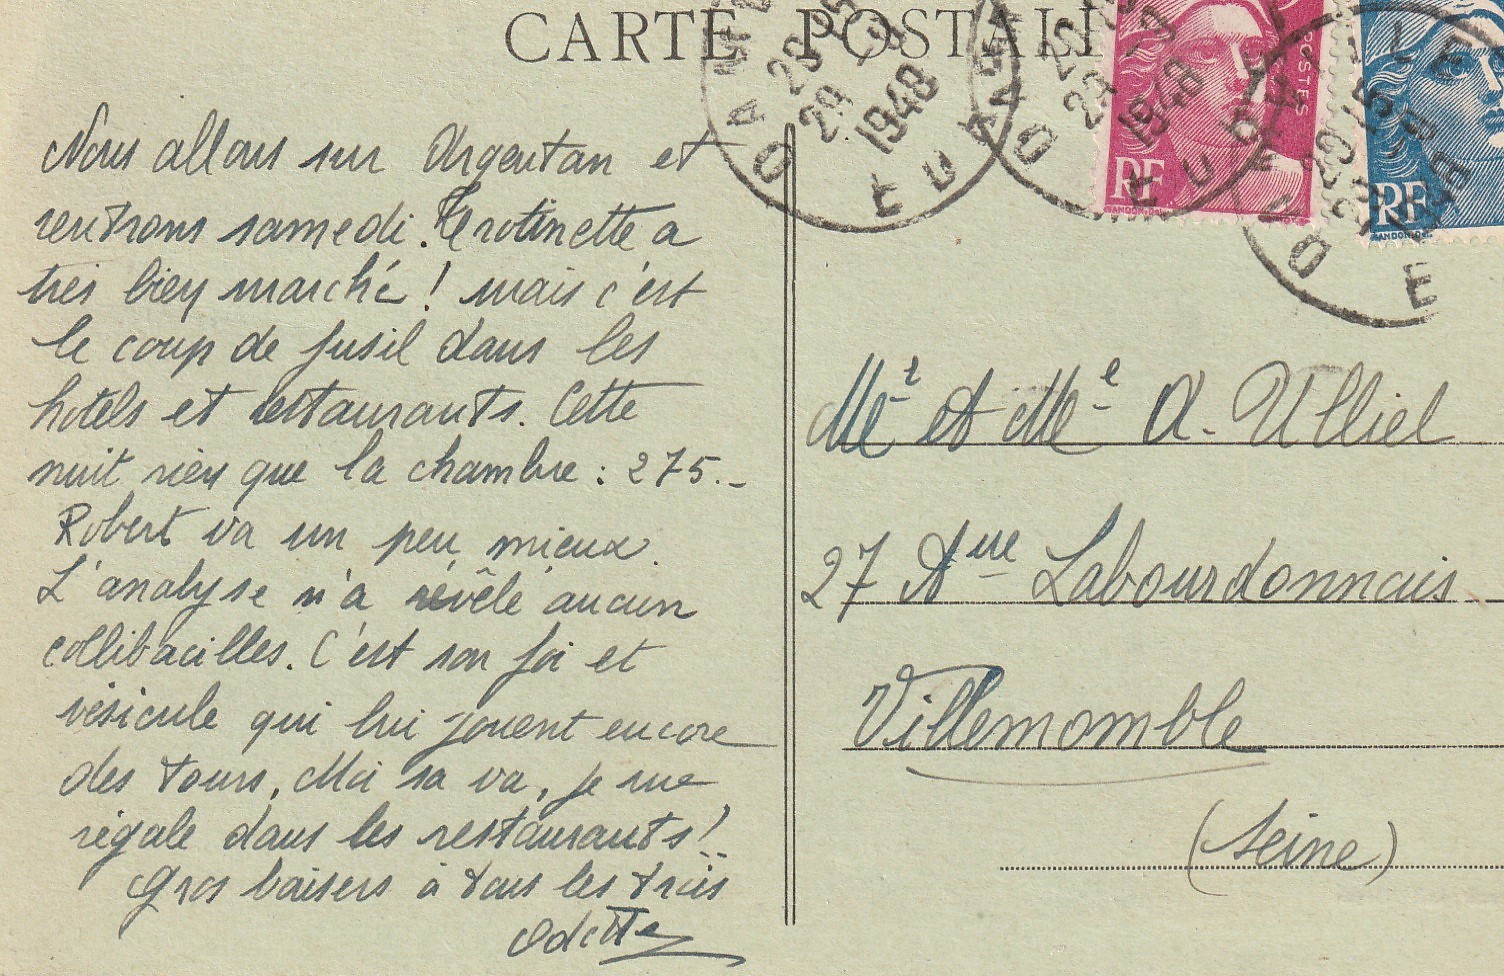 CARTE POSTALE
20
29 -9
1948
EURE
29 -9
1948
EURE
POSTES
RF
GANDON
RF
GANDON
E
Nous allons sur Argentan et
rentrons samedi. Trotinette a
très bien marché ! mais c'est
le coup de fusil dans les
hotels et restaurants. Cette
nuit rien que la chambre : 275.-
Robert va un peu mieux.
L'analyse n'a révêlé aucun
collibacilles. C'est son foi et
vésicule qui lui jouent encore
des tours. Moi sa va, je me
régale dans les restaurants !
Gros baisers à tous les trois
Odette
Mr et Me A. Ulliel
27 Aue Labourdonnais
Villemomble
(Seine)